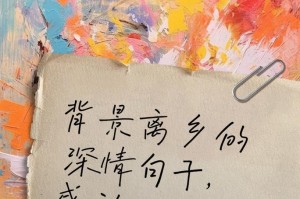 背景离乡的
深情句子,